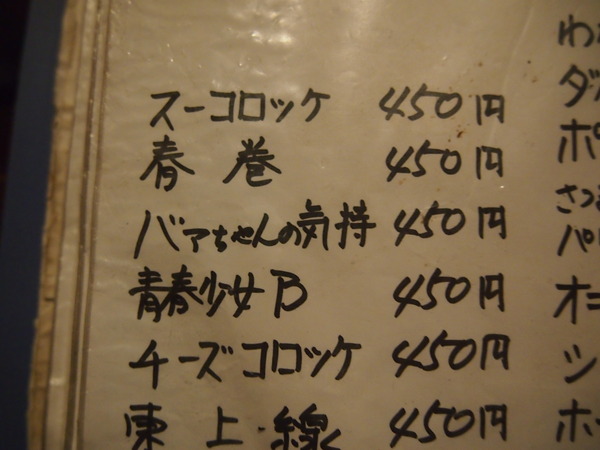 スーコロッケ 450円
春巻 450円
バァちゃんの気持 450円
青春少女B 450円
チーズコロッケ 450円
東上線 450円
わ
ダ
ポ
さつ
パ
オニ
シ
ホ